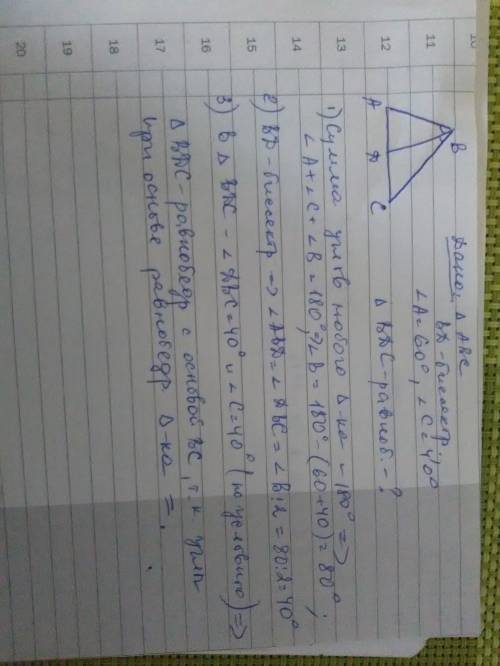 Дано: Δ ABC
BD - биссектр.
∠A = 60°, ∠C = 40°
Δ BDC - равноб. - ?
A
B
C
D
1) Сумма углов любого Δ-ка - 180° =>
∠A + ∠C + ∠B = 180° => ∠B = 180° - (60+40) = 80°;
2) BD - биссектр => ∠ABD = ∠DBC = ∠B:2 = 80:2 = 40°
3) В Δ BDC - ∠DBC = 40° и ∠C = 40° (по условию) =>
Δ BDC - равнобедр с основой BC, т.к. углы
при основе равнобедр Δ-ка =.
11
12
13
14
15
16
17
18
19
20